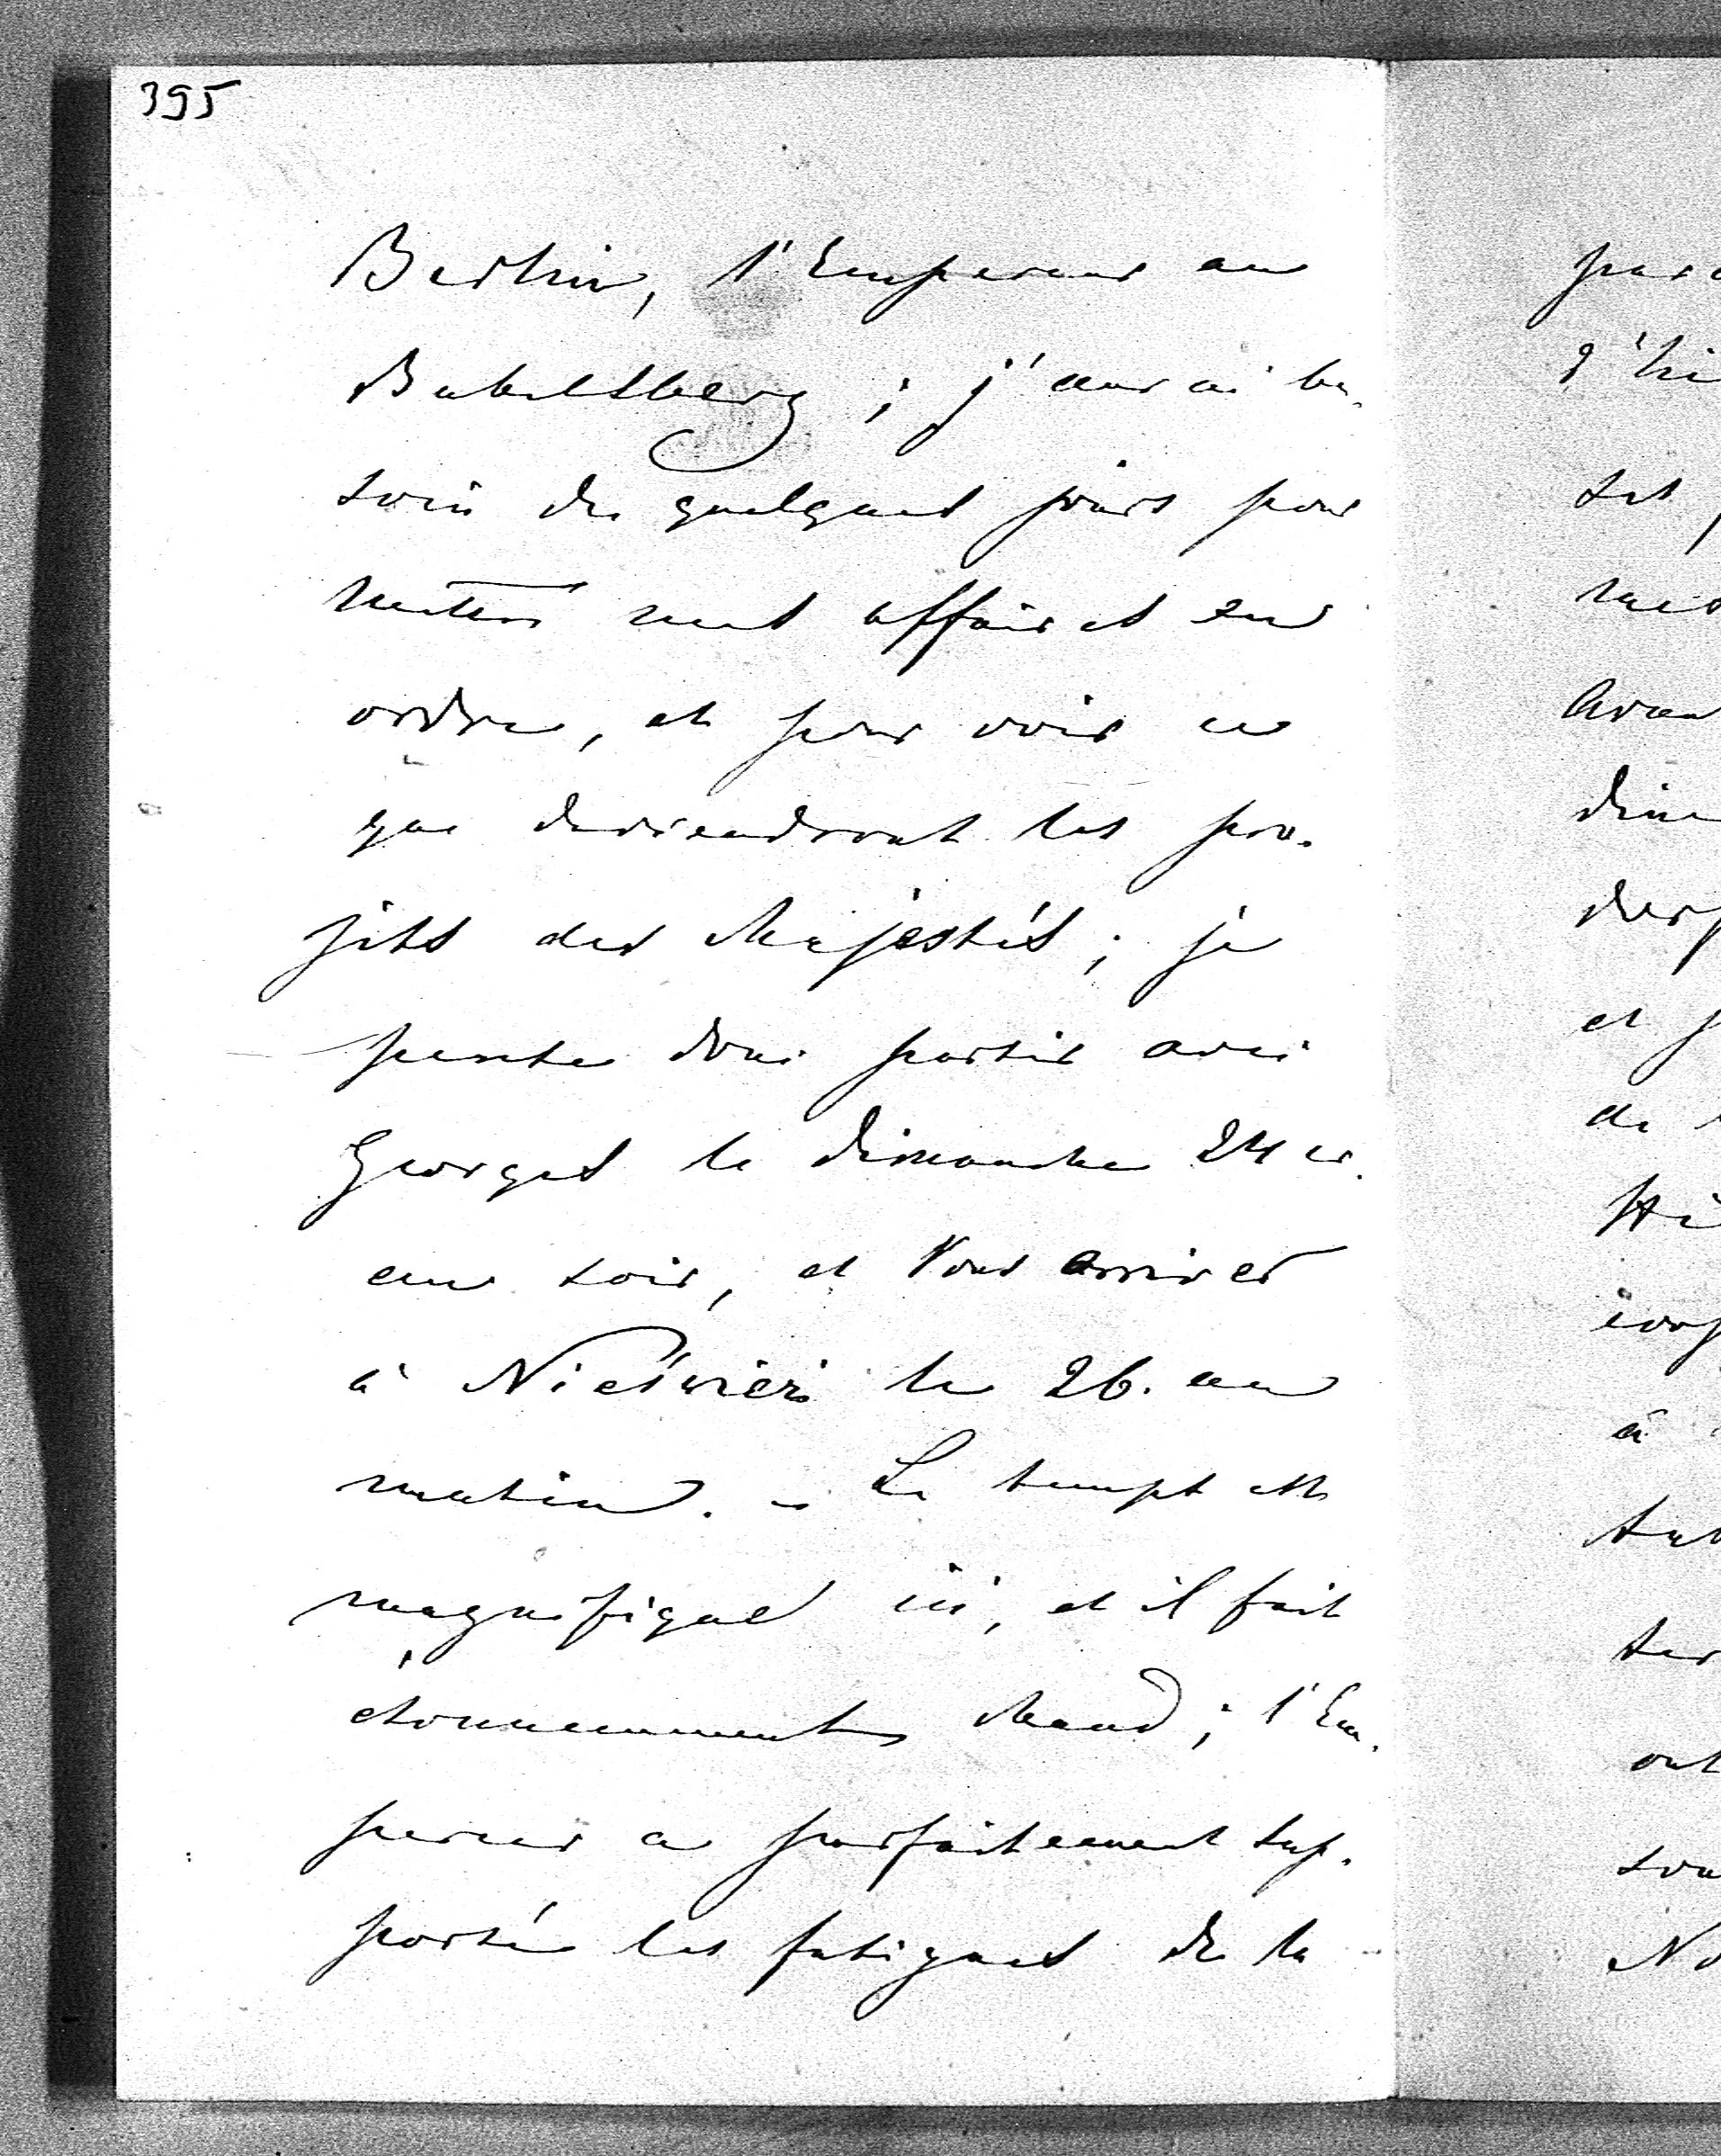 395
Berlin, l'Empereur au
Babelsberg ; j'aurai be-
soin de quelques jours pour
mettre mes affaires en
ordre, et pour voir ce
que deviendront les pro-
jets des Majestés ; je
pense donc partir avec
Georges le dimanche 24 cr.
au soir, et Vous arriver
à Nieśwież le 26. au
matin. – Le temps est
magnifique ici, et il fait
étonnamment chaud ; l'Em-
pereur a parfaitement sup-
porté les fatigues de la